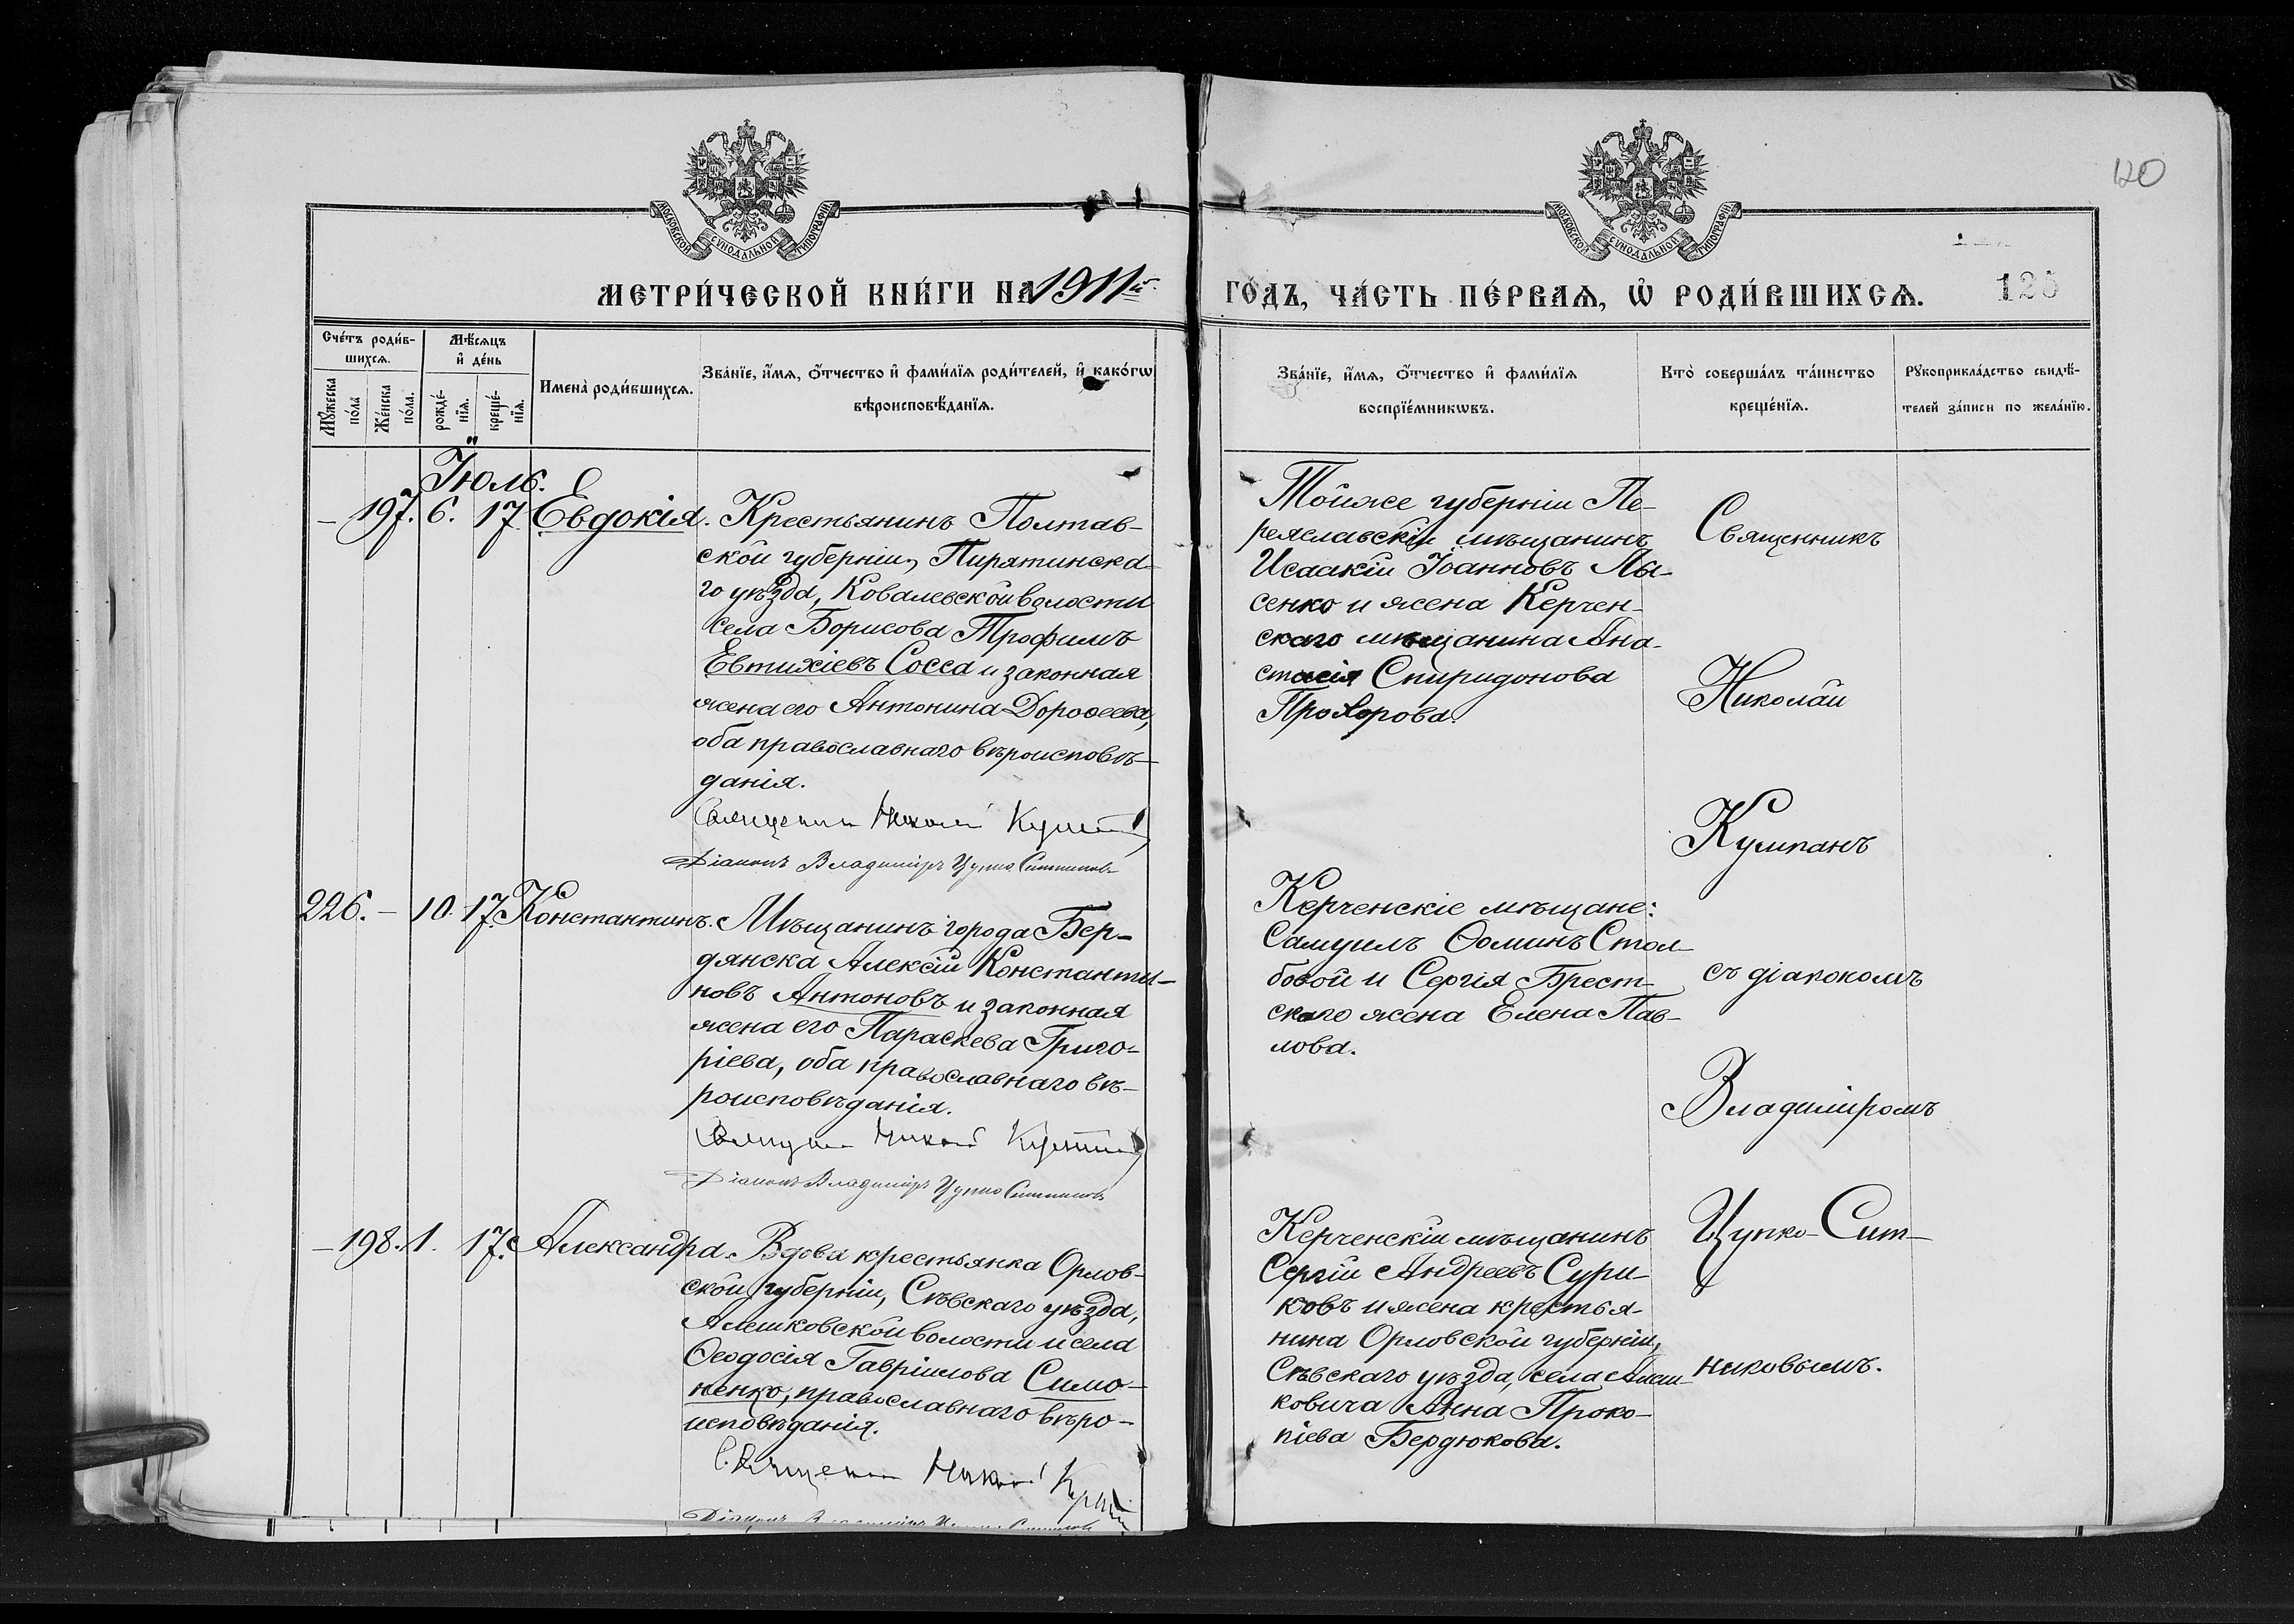 120
МОСКОВСКОЙ СѴНОДАЛЬНОЙ ТИПОГРАФІИ
МОСКОВСКОЙ СѴНОДАЛЬНОЙ ТИПОГРАФІИ
МЕТРИ́ЧЕСКОЙ КНИ́ГИ НА 1911й
ГО́ДЪ, ЧА́СТЬ ПЕ́РВАѦ, Ѡ҆ РОДИ́ВШИХСѦ.
Сче́тъ роди́в-
шихсѧ.
Мꙋ́жеска
по́ла
Же́нска
по́ла.
Мѣ́сѧцъ
и҆ де́нь
рожде́-
нїѧ.
креще́-
нїѧ.
Имена̀ роди́вшихсѧ.
Зва́нїе, и҆́мѧ, ѻ҆́тчество и҆ фами́лїѧ роди́телей, и҆ како́гѡ
вѣроисповѣ́данїѧ.
Зва́нїе, и҆́мѧ, ѻ҆́тчество и҆ фами́лїѧ
воспрїе́мникѡвъ.
Кто̀ соверша́лъ та́инство
креще́нїѧ.
Рꙋкоприкла́дство свидѣ́-
телей за́писи по жела́нїю.
Іюль.
– 197. 6. 17. Евдокія. Крестьянинъ Полтав-
ской губерніи, Пирятинска-
го уѣзда, Ковалевской волости
села Борисова Трофимъ
Евтихіевъ Сосса и законная
жена его Антонина Дороѳеева,
оба православнаго вѣроисповѣ-
данія.
Священникъ Николай Кумпанъ
Діаконъ Владиміръ Цупко Ситниковъ
Тойже губерніи Пе-
реяславскій мѣщанинъ
Исаакій Іоанновъ Лы-
сенко и жена Керчен-
скаго мѣщанина Ана-
стасія Спиридонова
Прохорова.
Священникъ
Николай
Кумпанъ
226. – 10. 17. Константинъ. Мѣщанинъ города Бер-
дянска Алексій Константи-
новъ Антоновъ и законная
жена его Параскева Григо-
ріева, оба православнаго вѣ-
роисповѣданія.
Священникъ Николай Кумпанъ
Діаконъ Владиміръ Цупко Ситниковъ
Керченскіе мѣщане:
Самуилъ Ѳоминъ Стол-
бовой и Сергія Брест-
скаго жена Елена Пав-
лова.
съ діакономъ
Владиміромъ
– 198. 1. 17. Александра. Вдова крестьянка Орлов-
ской губерніи, Сѣвскаго уѣзда,
Алешковской волости и села
Ѳеодосія Гавріилова Симо-
ненко, православнаго вѣро-
исповѣданія.
Священникъ Николай Кумпанъ
Діаконъ Владиміръ Цупко Ситниковъ
Керченскій мѣщанинъ
Сергій Андреевъ Сури-
ковъ и жена крестья-
нина Орловской губерніи,
Сѣвскаго уѣзда, села Алеш-
ковича Анна Проко-
піева Бердюкова.
Цупко-Сит-
никовымъ.